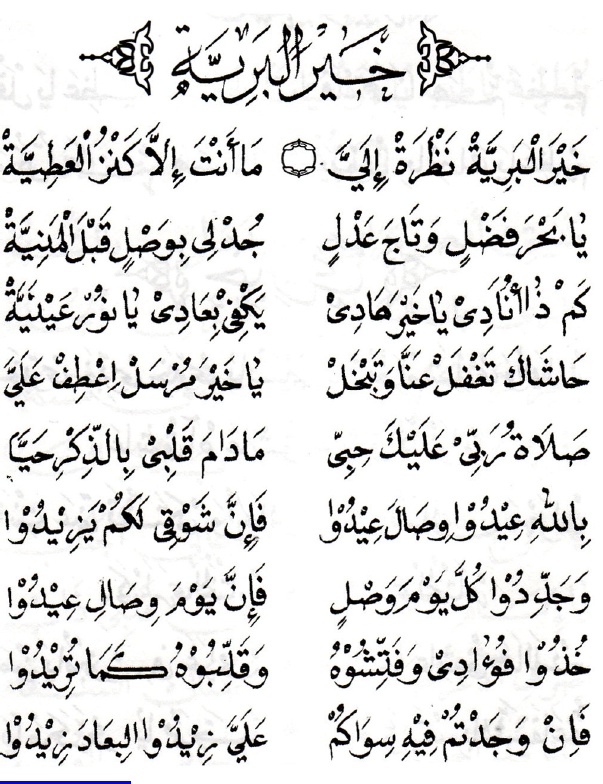 خَيْرَ الْبَرِيَّةِ
خَيْرَ الْبَرِيَّةْ نَظْرَةْ إِلَيَّ ۞ مَا أَنْتَ إِلاَّ كَنْزُ الْعَطِيَّةْ
يَا بَحْرَ فَضْلٍ وَتَاجَ عَدْلٍ جُدْ لِى بِوَصْلٍ قَبْلَ الْمَنِيَّةْ
كَمْ ذَا أُنَادِىْ يَا خَيْرَ هَادِىْ يَكْفِىْ بِعَادِىْ يَا نُوْرَ عَيْنَيَّهْ
حَاشَاكَ تَغْفَلْ عَنَّا وَتَبْخَلْ يَا خَيْرَ مُرْسَلْ اِعْطِفْ عَلَيَّ
صَلَاةُ رَبِّىْ عَلَيْكَ حِبِّى مَادَامَ قَلْبِىْ بِالذِّكْرِ حَيًّا
بِاللهِ عِيْدُوْا وِصَالَ عِيْدُوْا فَإِنَّ شَوْقِى لَكُمْ يَزِيْدُوْا
وَجَدِّدُوْا كُلَّ يَوْمَ وَصْلٍ فَإِنَّ يَوْمَ وِصَالِ عِيْدُوْا
خُذُوْا فُؤَادِىْ وَفَتِّشُوْهُ وَقَلِّبُوْهُ كَمَا تُرِيْدُوْا
فَإِنْ وَجَدْتُمْ فِيْهِ سِوَاكُمْ عَلَيَّ زِيْدُوْا الْبِعَادَ زِيْدُوْا